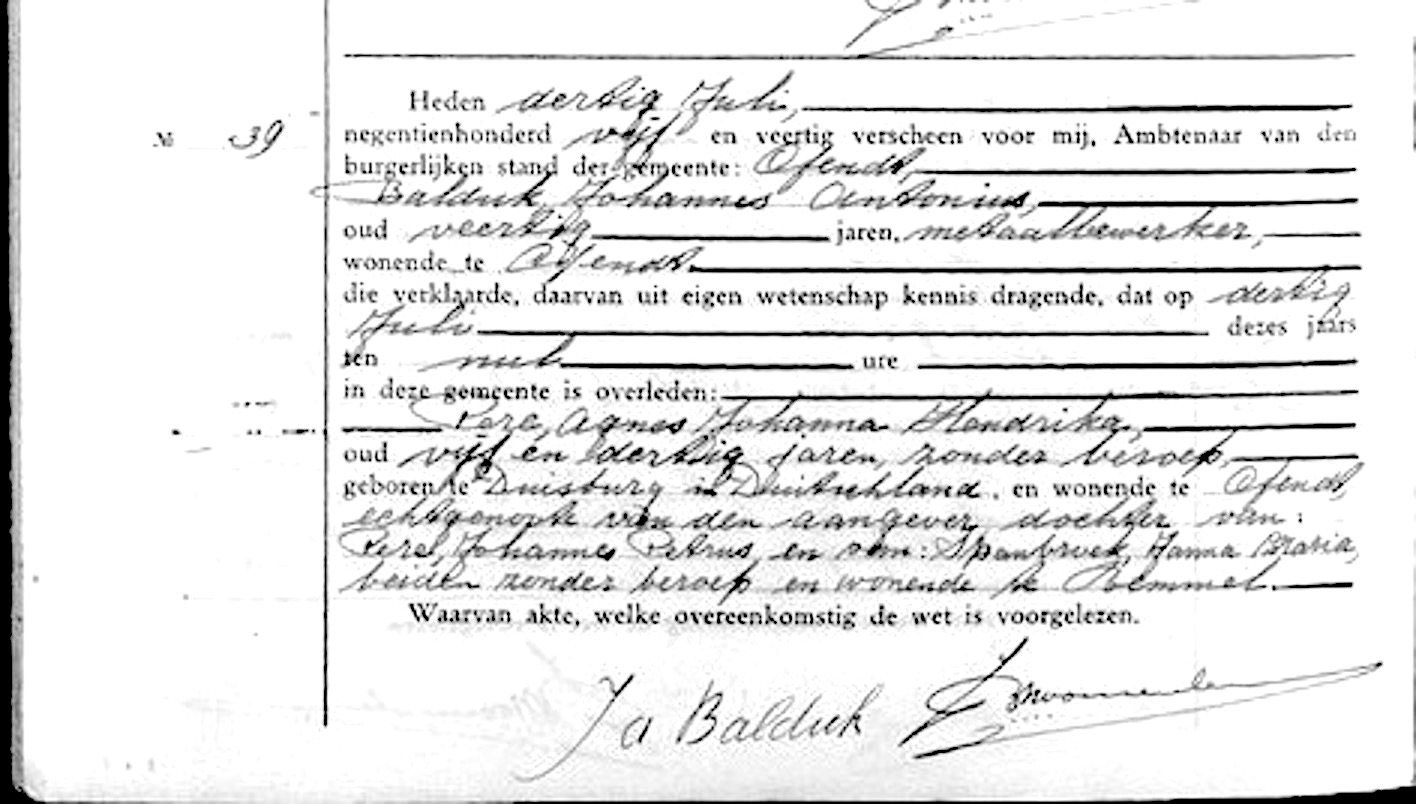 № 39
Heden dertig Juli,
negentienhonderd vijf en veertig verscheen voor mij, Ambtenaar van den
burgerlijken stand der gemeente:
Balduk, Johannes Antonius,
oud veertig jaren, metaalbewerker,
wonende te
die verklaarde, daarvan uit eigen wetenschap kennis dragende, dat op dertig
Juli dezes jaars
ten ure
in deze gemeente is overleden:
Agnes Johanna Hendrika,
oud vijf en dertig jaren, zonder beroep,
geboren te Duisburg in Duitschland, en wonende te
echtgenoote van den aangever, dochter van:
Johannes Petrus en van: Spanbroek, Hanna Maria,
beiden zonder beroep en wonende te Bemmel.
Waarvan akte, welke overeenkomstig de wet is voorgelezen.
J a Balduk